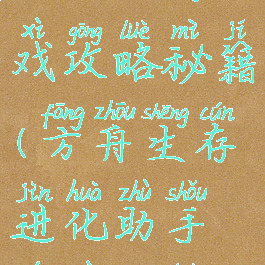 xì gōng lüè mì jí
戏攻略秘籍
fāng zhōu shēng cún
(方舟生存
jìn huà zhù shǒu
进化助手